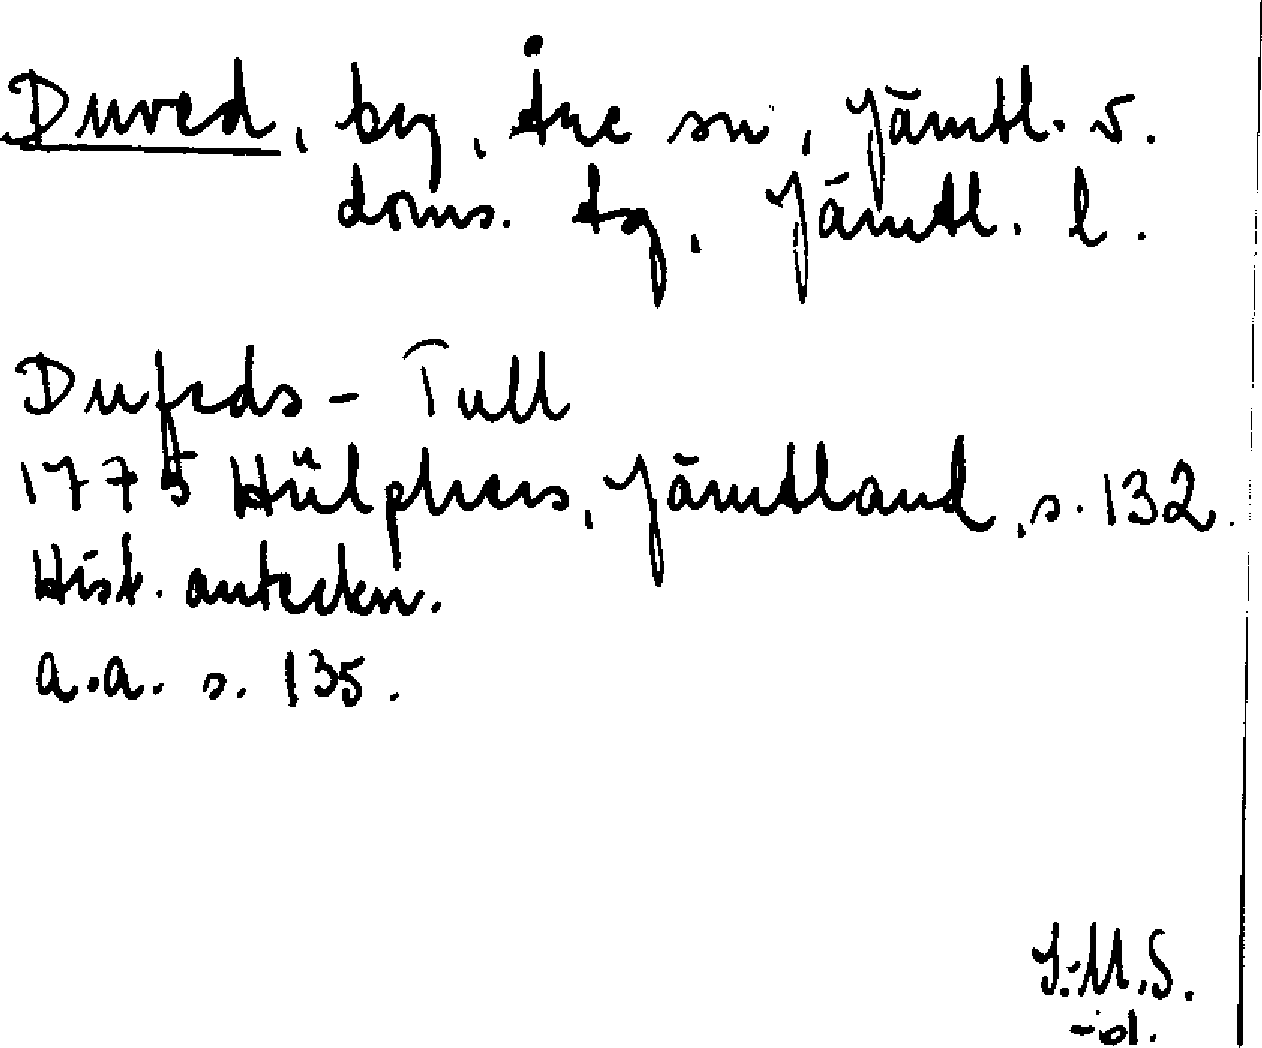 Duved, by, Åre sn, Jämtl. v.
doms. tg, Jämtl. l.
Dufeds - Tull
1775 Hülphers, Jämtland, s. 132.
Hist. anteckn.
a.a. s. 135.